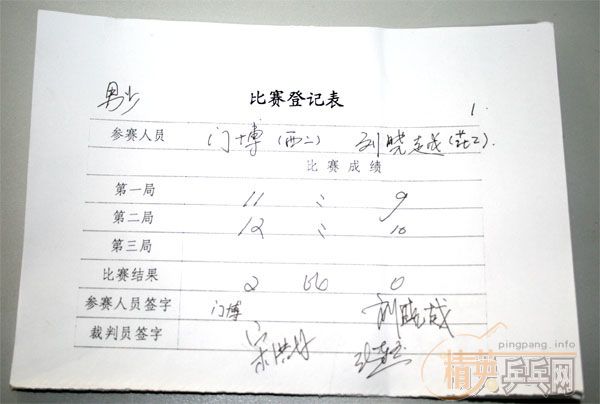 比赛登记表
男少 1.
参赛人员 门博(西二) 刘晓越(芷工).
比赛成绩
第一局 11 : 9
第二局 12 : 10
第三局
比赛结果 2 比 0
参赛人员签字 门博 刘晓越
裁判员签字
pingpang.info
精英乒乓网